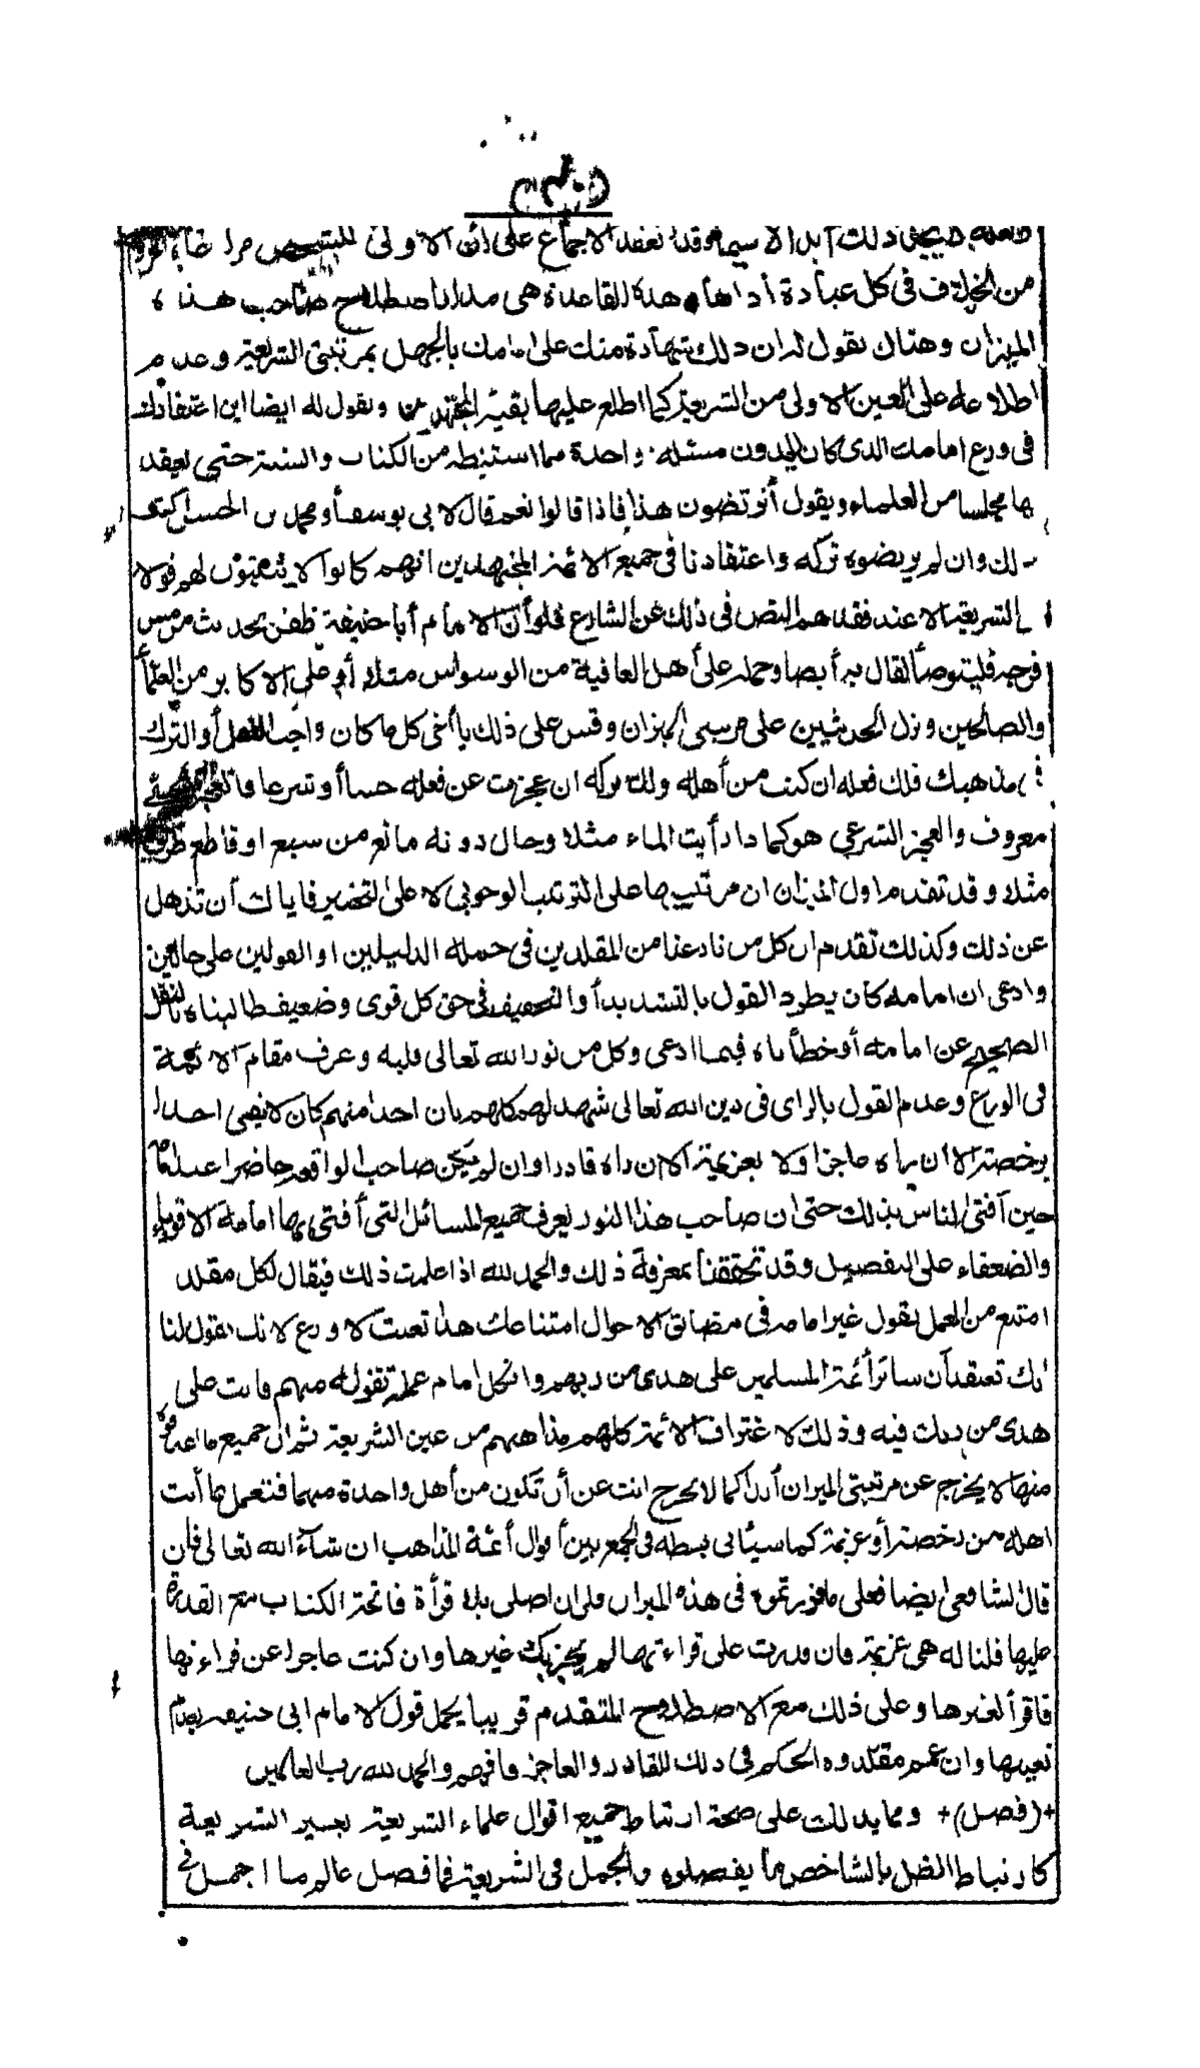 ذلك أبدا لا سيما وقد انعقد الاجماع على أن الاولى للشخص مراعاة الخروج
من الخلاف فى كل عبادة أداها وهذه القاعدة هى مدار اصطلاح صاحب هذه
الميزان وهناك يقول له ان ذلك شهادة منك على امامك بالجهل بمرتبتى الشريعة وعدم
اطلاعه على العين الاولى من الشريعة كما اطلع عليها بقية المجتهدين ونقول له ايضا اين اعتقادك
فى ورع امامك الذى كان لا يدون مسئلة واحدة مما استنبطه من الكتاب والسنة حتى يعقد
لها مجلسا من العلماء ويقول أترتضون هذا فاذا قالوا نعم قال لابى يوسف أو محمد بن الحسن اكتب
ذلك وان لم يرتضوه تركه واعتقادنا فى جميع الائمة المجتهدين انهم كانوا لا يثبتون لهم قولا
فى الشريعة الا عند فقدهم النص فى ذلك عن الشارع فلو أن الامام أبا حنيفة ظفر بحديث من مس
فرجه فليتوضأ لقال به أيضا وحمله على أهل العافية من الوسواس مثلا أو على الاكابر من العلماء
والصالحين ونزل الحديثين على مرتبتى الميزان وقس على ذلك يا أخى كل ما كان واجب الفعل أو الترك
فى مذهبك فلك فعله ان كنت من أهله ولك تركه ان عجزت عن فعله حسا أو شرعا فالعجز الحسى
معروف والعجز الشرعى هو كما اذا رأيت الماء مثلا وحال دونه مانع من سبع او قاطع طريق
مثلا وقد تقدم اول الميزان ان مرتبتيها على الترتيب الوجوبى لا على التخيير فاياك أن تذهل
عن ذلك وكذلك تقدم ان كل من نازعنا من المقلدين فى حمله الدليلين او القولين على حالين
وادعى ان امامه كان يطرد القول بالتشديد أو التخفيف فى حق كل قوى وضعيف طالبناه بالنقل
الصحيح عن امامه أو خطأناه فيما ادعى وكل من نور الله تعالى قلبه وعرف مقام الائمة
فى الورع وعدم القول بالراى فى دين الله تعالى شهد لهم كلهم بان احدا منهم كان لا يفتى احدا
برخصة الا ان رآه عاجزا ولا بعزيمة الا ان رآه قادرا وان لم يكن صاحب الواقعة حاضرا عند
حين أفتى الناس بذلك حتى ان صاحب هذا النور يعرف جميع المسائل التى أفتى بها امامه الاقوياء
والضعفاء على التفصيل وقد تحققنا بمعرفة ذلك والحمد لله اذا علمت ذلك فيقال لكل مقلد
امتنع من العمل بقول غير امامه فى مضائق الاحوال امتناعك هذا تعنت لا ورع لانك تقول لنا
انك تعتقد أن سائر أئمة المسلمين على هدى من ربهم وان كل امام عملت بقوله منهم فانت على
هدى من ربك فيه وذلك لاغتراف الائمة كلهم مذاهبهم من عين الشريعة ثم ان جميع ما
منها لا يخرج عن مرتبتى الميزان أبدا كما لا تخرج انت عن أن تكون من أهل واحدة منهما فتعمل بما أنت
اهله من رخصة أو عزيمة كما سيأتى بسطه فى الجمع بين أقوال أئمة المذاهب ان شاء الله تعالى فان
قال لشافعى ايضا فعلى ما قررتموه فى هذه الميزان فلى ان اصلى بلا قرأة فاتحة الكتاب مع القدرة
عليها قلنا له هى عزيمة فان قدرت على قراءتها لم يجزيك غيرها وان كنت عاجزا عن قراءتها
فاقرأ لغيرها وعلى ذلك مع الاصطلاح المتقدم قريبا يحمل قول الامام ابى حنيفة بعدم
تعيينها وان عمم مقلدوه الحكم فى ذلك للقادر والعاجز فافهم والحمد لله رب العالمين
+(فصل)+ ومما يدلك على صحة ارتباط جميع اقوال علماء الشريعة بعين الشريعة
كارتباط الظل بالشاخص ما يفصلوه والمجمل فى الشريعة فما فصل عالم ما اجمل فى